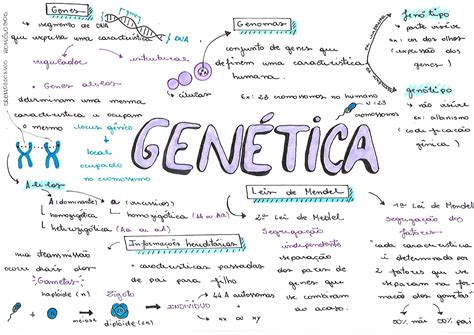 Genes
• segmento de DNA
que expressa uma característica
regulador
estrutural
• Genes alelos
determinam uma mesma
característica e ocupam
o mesmo locus gênico
local
ocupado
no cromossomo
DNA
células
Genomas
conjunto de genes que
definem uma característica
humana.
Ex: 23 cromossomo no humano
n = 23
cromossomos
fenótipo
• parte visível
ex: cor dos olhos
(expressão dos
genes)
genótipo
• não visível
ex: albinismo
(codificação
gênica)
GENÉTICA
Alelos
A (dominante) a (recessivos)
homozigótica (AA ou aa)
heterozigótica (Aa ou aA)
Informações hereditárias
• características passadas
de pai para filho
sua transmissão
ocorre através dos
"Gametas"
haplóide (n)
+
meiose
Zigoto
diplóide (2n)
INDIVÍDUO
44 A autossomos
xx ou xy
Leis de Mendel
2ª Lei de Mendel
Segregação
independente
separação
dos pares de
genes que
se combinam
ao acaso.
1ª Lei de Mendel
Segregação dos
fatores
cada característica
é determinada por
2 fatores que se
separam na form.
do gameta.
50% 50% pai